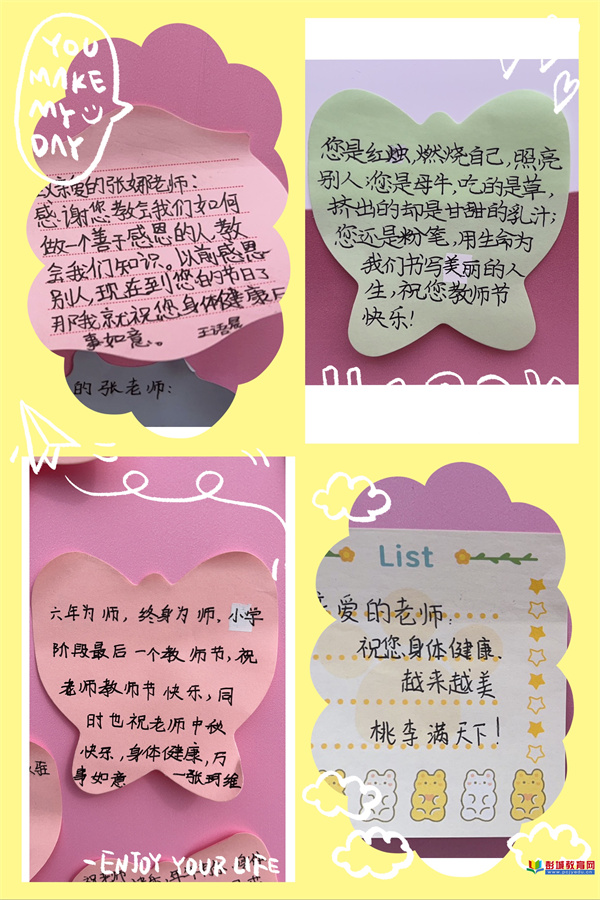 YOU
MAKE
MY
DAY
致亲爱的张娜老师：
感谢您教会我们如何
做一个善于感恩的人，教
会我们知识。以前感恩
别人，现在到您的节日了
那我就祝您身体健康万
事如意。
王语晨
的张老师：
您是红烛，燃烧自己，照亮
别人；您是母牛，吃的是草，
挤出的却是甘甜的乳汁；
您还是粉笔，用生命为
我们书写美丽的人
生，祝您教师节
快乐！
六年为师，终身为师。小学
阶段最后一个教师节，祝
老师教师节快乐，同
时也祝老师中秋
快乐，身体健康，万
事如意 —张珂维
List
亲爱的老师：
祝您身体健康
越来越美
桃李满天下！
-ENJOY YOUR LIFE
彭城教育网
www.pcjyedu.cn